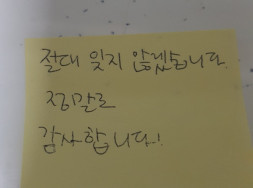 절대 잊지 않겠습니다
정말로
감사합니다!